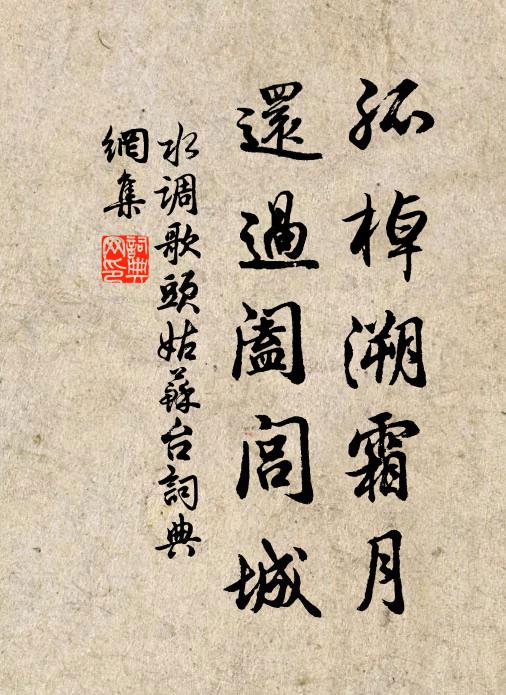 孤棹溯霜月
還過闔閭城
水调歌頭姑蘇台詞典
網集
詞典
网印